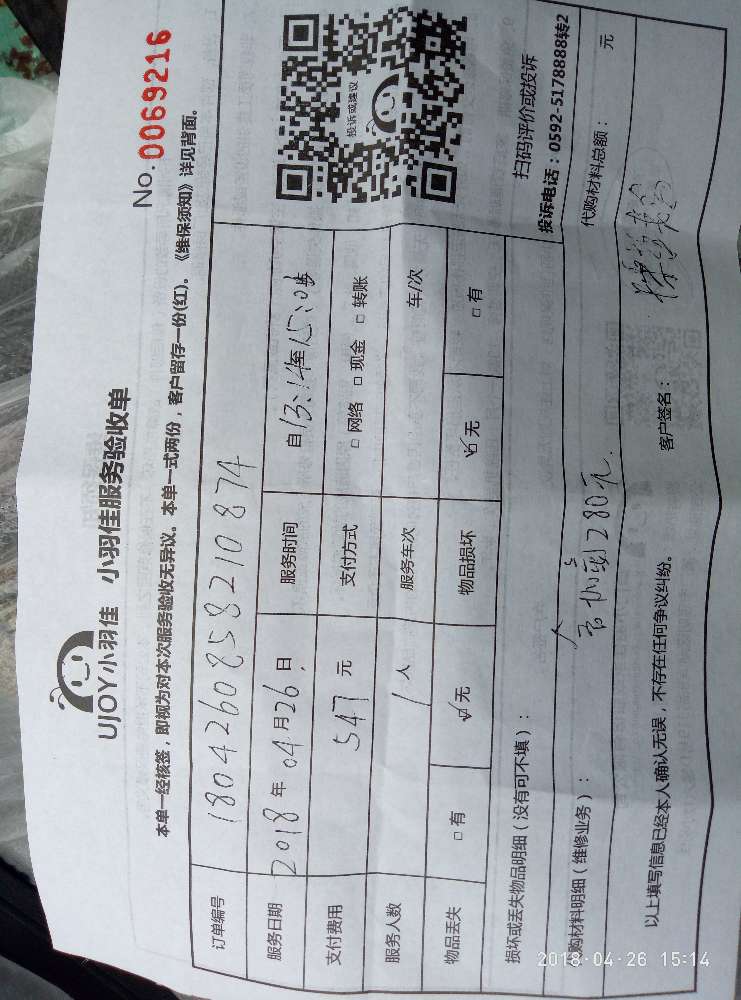 UJOY小羽佳 小羽佳服务验收单
No. 0069216
本单一经核签，即视为对本次服务验收无异议。本单一式两份，客户留存一份(红)。《维保须知》详见背面。
订单编号 180426085821087​4
服务日期 2018年04月26日 服务时间 自13:14至15:10
支付费用 547元 支付方式 □网络 □现金 □转账
服务人数 1人 服务车次 车/次
物品丢失 □有 ☑无 物品损坏 ☑无 □有
投诉或建议
扫码评价或投诉
投诉电话：0592-5178888转2
损坏或丢失物品明细（没有可不填）：
代购材料明细（维修业务）： 280元. 代购材料总额： 元
以上填写信息已经本人确认无误，不存在任何争议纠纷。 客户签名：
2018-04-26 15:14